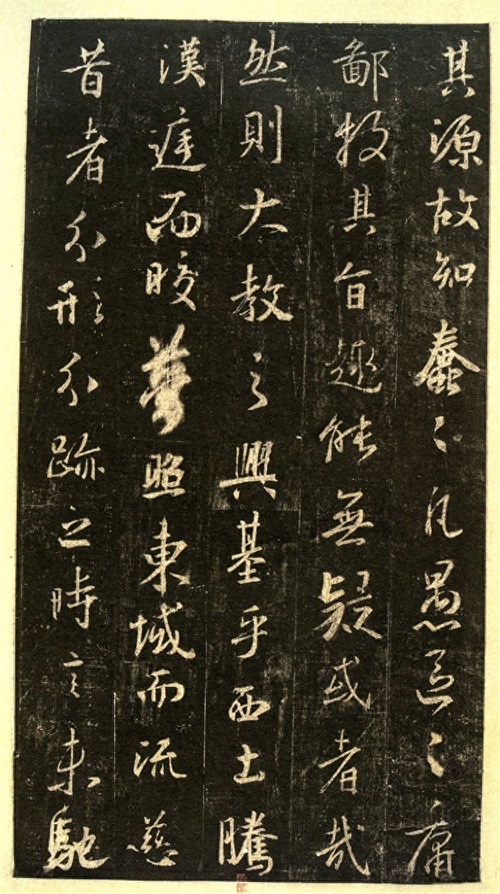 其源故知蠢〻凡愚區〻庸
鄙投其旨趣能無疑或者哉
然則大教之興基乎西土騰
漢庭而晈夢照東域而流慈
昔者分形分跡之時言未馳